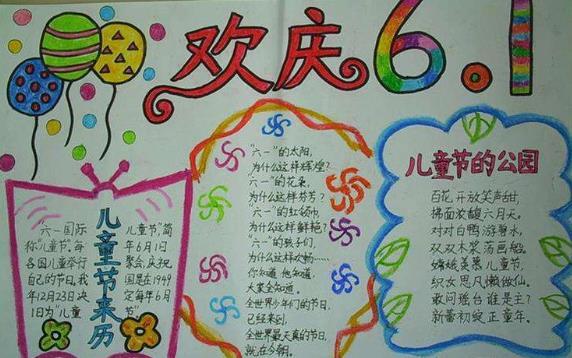 欢庆6.1
儿童节来历
六一国际
称"儿童节"每
各国儿童举行
自己的节日,我
年12月23日决
1日为"儿童
儿童节"简
年6月1日
聚会,庆祝
国是在1949
定每年6月
节"
"六一"的太阳,
为什么这样辉煌?
"六一"的花朵,
为什么这样芬芳?
"六一"的红领巾
为什么这样鲜艳?
"六一"的孩子们,
为什么这样欢畅……
你知道 他知道
大家全知道.
全世界少年们的节日,
已经来到,
全世界最天真的节日,
就在今朝.
儿童节的公园
百花开放笑声甜,
拂面浓馥六月天。
对对白鸭游碧水,
双双木桨荡画船。
嫦娥羡慕儿童节,
织女思凡懒做仙。
敢问瑶台谁是主?
新蕾初绽正童年。